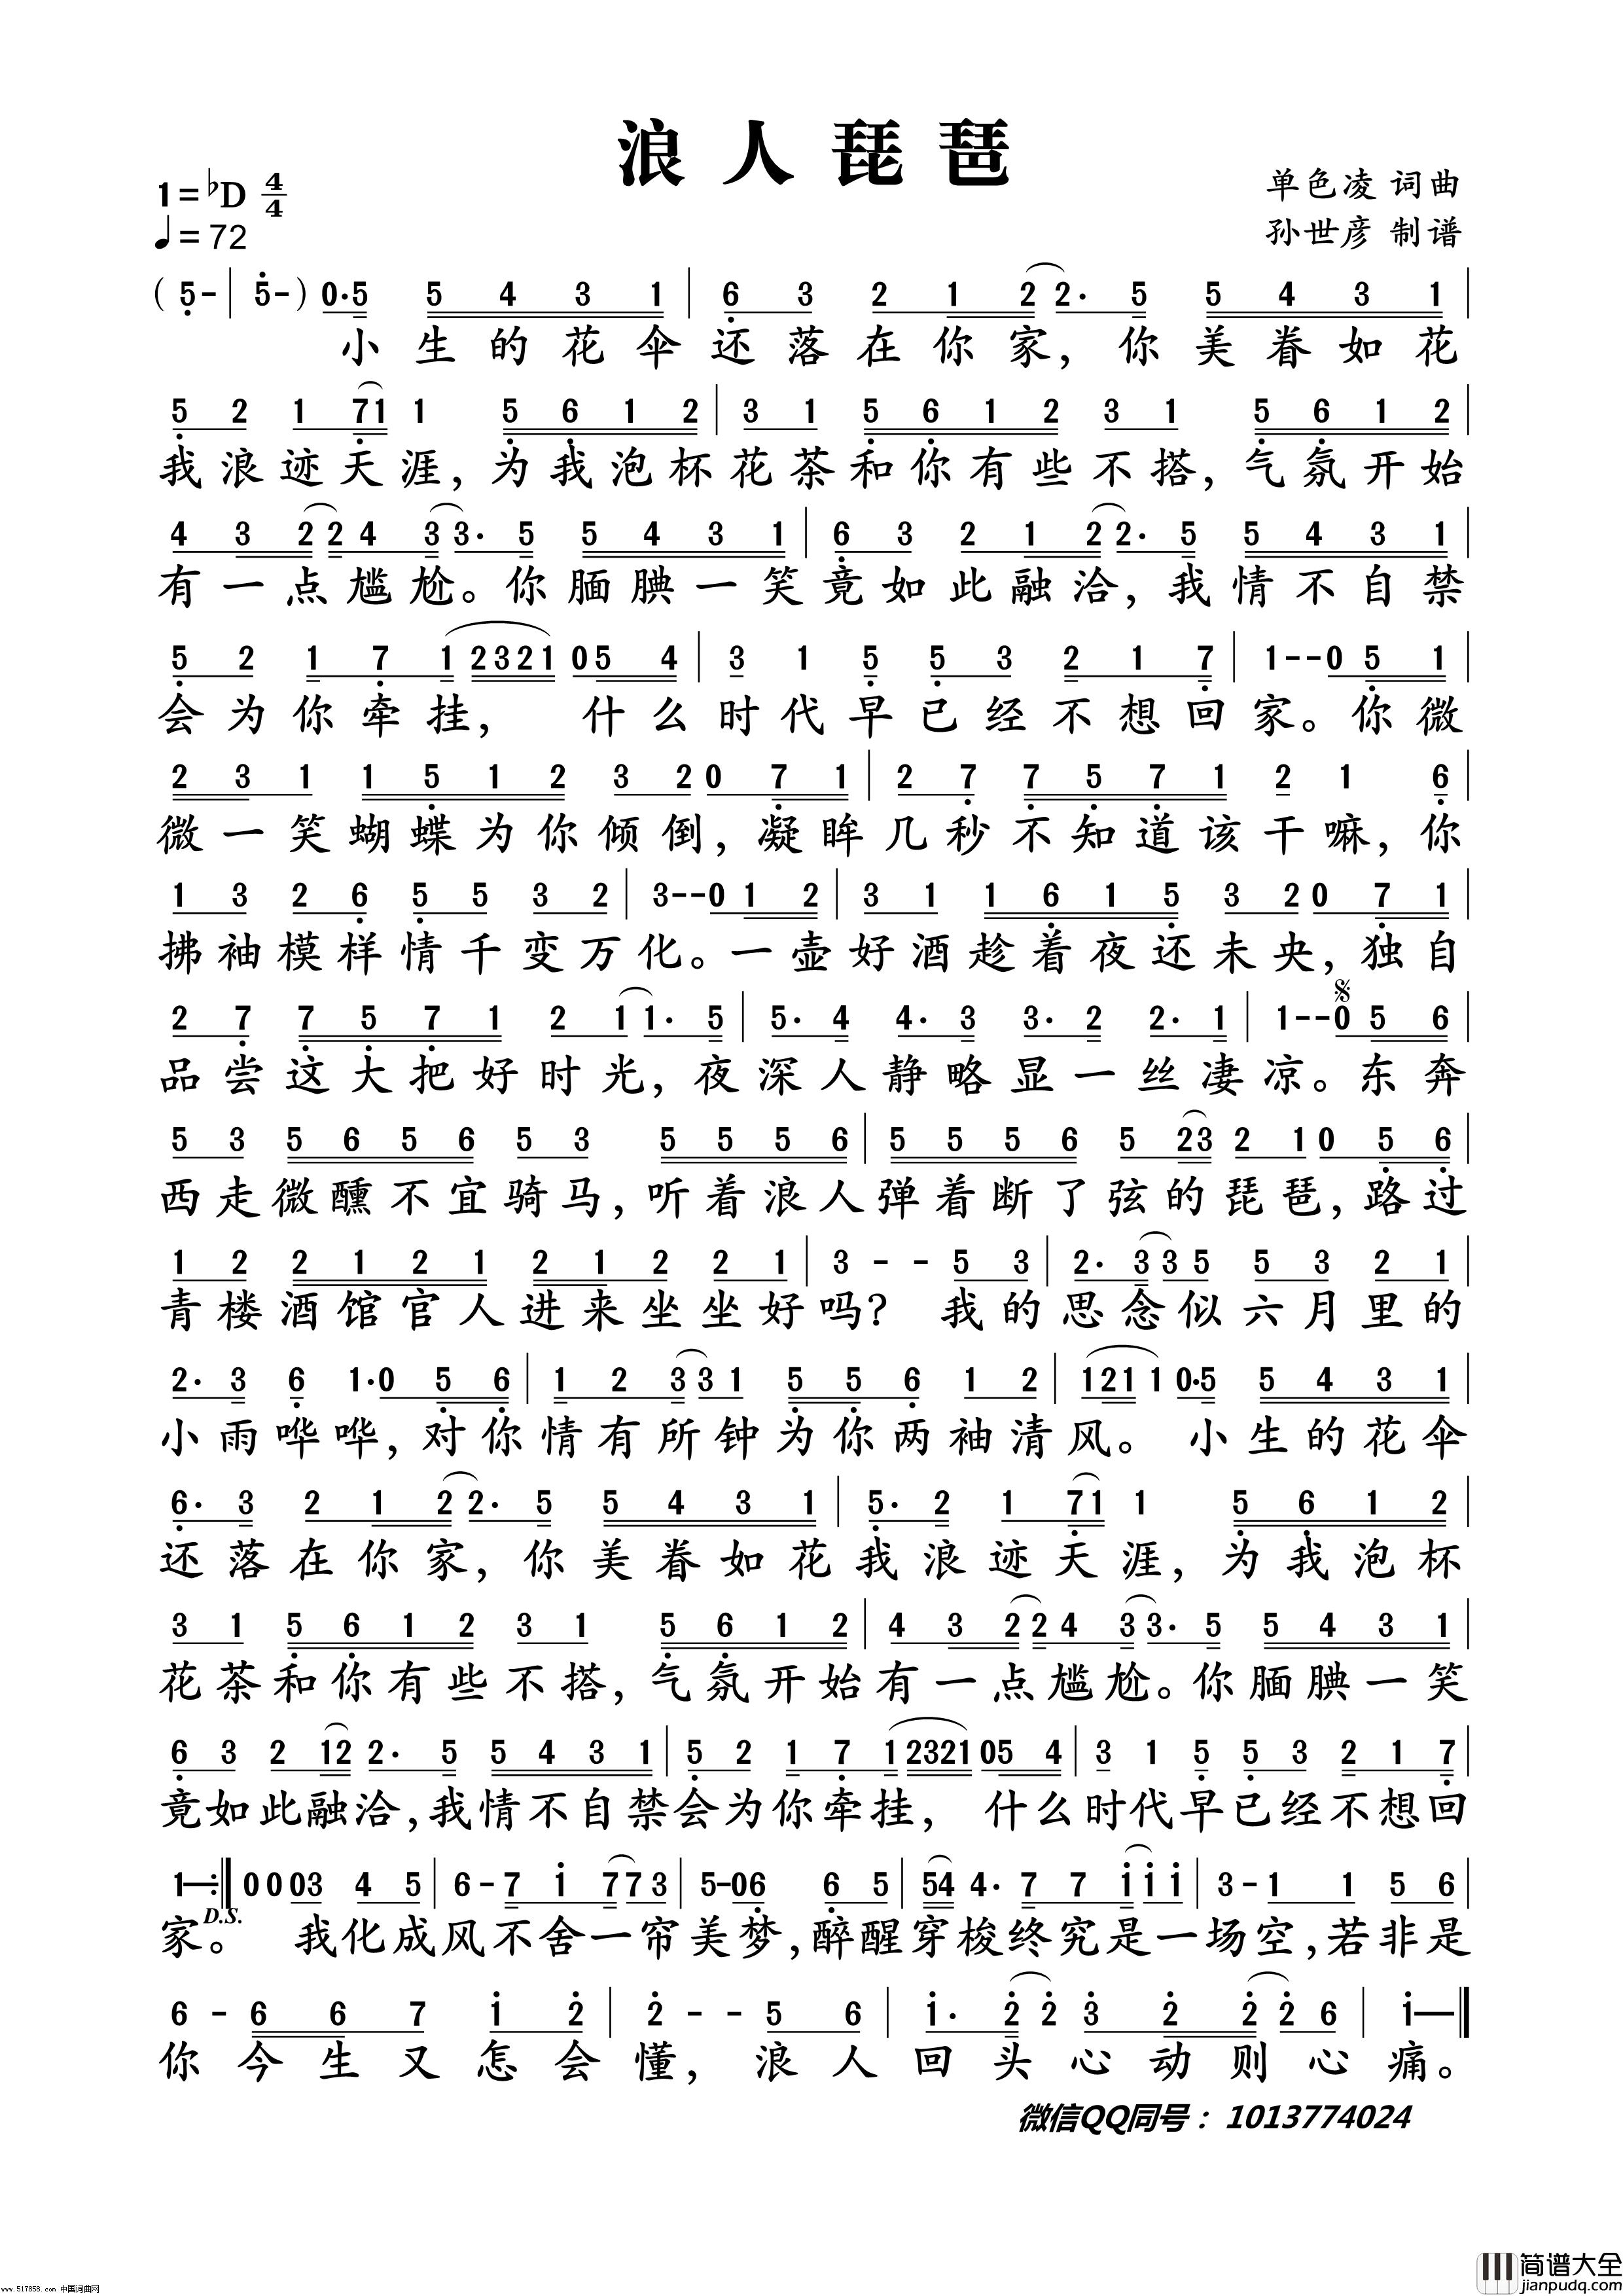 浪人琵琶
1=♭D 4/4
单色凌 词曲
♩=72
孙世彦 制谱
(5-|5-)0·5 5 4 3 1|6 3 2 1 2 2· 5 5 4 3 1|
小生的花伞还落在你家，你美眷如花
5 2 1 71 1 5 6 1 2|3 1 5 6 1 2 3 1 5 6 1 2|
我浪迹天涯，为我泡杯花茶和你有些不搭，气氛开始
4 3 2 2 4 3 3· 5 5 4 3 1|6 3 2 1 2 2· 5 5 4 3 1|
有一点尴尬。你腼腆一笑竟如此融洽，我情不自禁
5 2 1 7 1 2321 05 4|3 1 5 5 3 2 1 7|1--0 5 1|
会为你牵挂， 什么时代早已经不想回家。你微
2 3 1 1 5 1 2 3 2 0 7 1|2 7 7 5 7 1 2 1 6|
微一笑蝴蝶为你倾倒，凝眸几秒不知道该干嘛，你
1 3 2 6 5 5 3 2|3--0 1 2|3 1 1 6 1 5 3 2 0 7 1|
拂袖模样情千变万化。一壶好酒趁着夜还未央，独自
2 7 7 5 7 1 2 1 1· 5|5· 4 4· 3 3· 2 2· 1|1--0 5 6|
品尝这大把好时光，夜深人静略显一丝凄凉。东奔
5 3 5 6 5 6 5 3 5 5 5 6|5 5 5 6 5 23 2 1 0 5 6|
西走微醺不宜骑马，听着浪人弹着断了弦的琵琶，路过
1 2 2 1 2 1 2 1 2 2 1|3 - - 5 3|2· 3 3 5 5 3 2 1|
青楼酒馆官人进来坐坐好吗？ 我的思念似六月里的
2· 3 6 1·0 5 6|1 2 3 3 1 5 5 6 1 2|121 1 0·5 5 4 3 1|
小雨哗哗，对你情有所钟为你两袖清风。 小生的花伞
6· 3 2 1 2 2· 5 5 4 3 1|5· 2 1 71 1 5 6 1 2|
还落在你家，你美眷如花我浪迹天涯，为我泡杯
3 1 5 6 1 2 3 1 5 6 1 2|4 3 2 2 4 3 3· 5 5 4 3 1|
花茶和你有些不搭，气氛开始有一点尴尬。你腼腆一笑
6 3 2 12 2· 5 5 4 3 1|5 2 1 7 1 2321 05 4|3 1 5 5 3 2 1 7|
竟如此融洽，我情不自禁会为你牵挂， 什么时代早已经不想回
1—:‖0 0 03 4 5|6-7 1 7 7 3|5-06 6 5|54 4· 7 7 1 1 1|3-1 1 5 6|
D.S.
家。 我化成风不舍一帘美梦，醉醒穿梭终究是一场空，若非是
6 - 6 6 7 1 2|2 - - 5 6|1· 2 2 3 2 2 2 6|1—‖
你今生又怎会懂，浪人回头心动则心痛。
微信QQ同号：1013774024
www.517858.com 中国词曲网
简谱大全
jianpudq.com